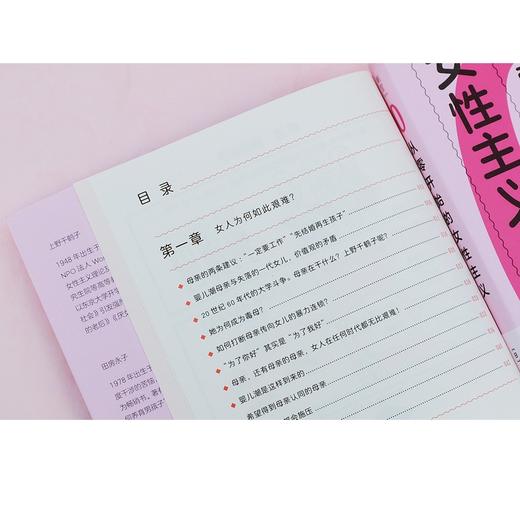 目 录
第一章 女人为何如此艰难？
母亲的两条建议：“一定要工作”“先结婚再生孩子”
婴儿潮母亲与失落的一代女儿，价值观的矛盾
20世纪60年代的大学斗争。母亲在干什么？上野千鹤子呢？
她为何成为毒母？
如何打断母亲传向女儿的暴力连锁？
“为了你好”其实是“为了我好”
母亲，还有母亲的母亲，女人在任何时代都无比艰难！
婴儿潮是这样到来的
希望得到母亲认同的母亲
会施压
上野千鹤子
1948 年出生于
NPO 法人 Wor
女性主义理论及
究生院等高等
以东京大学开学
社会》引发强烈
的老后》《厌女
田房永子
1978 年出生于
度干涉的苦恼，
为畅销书。著有
何养育男孩子
女性主义
从零开始的女性主义